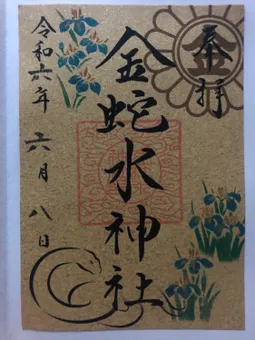 奉拝
金蛇水神社
令和六年六月八日